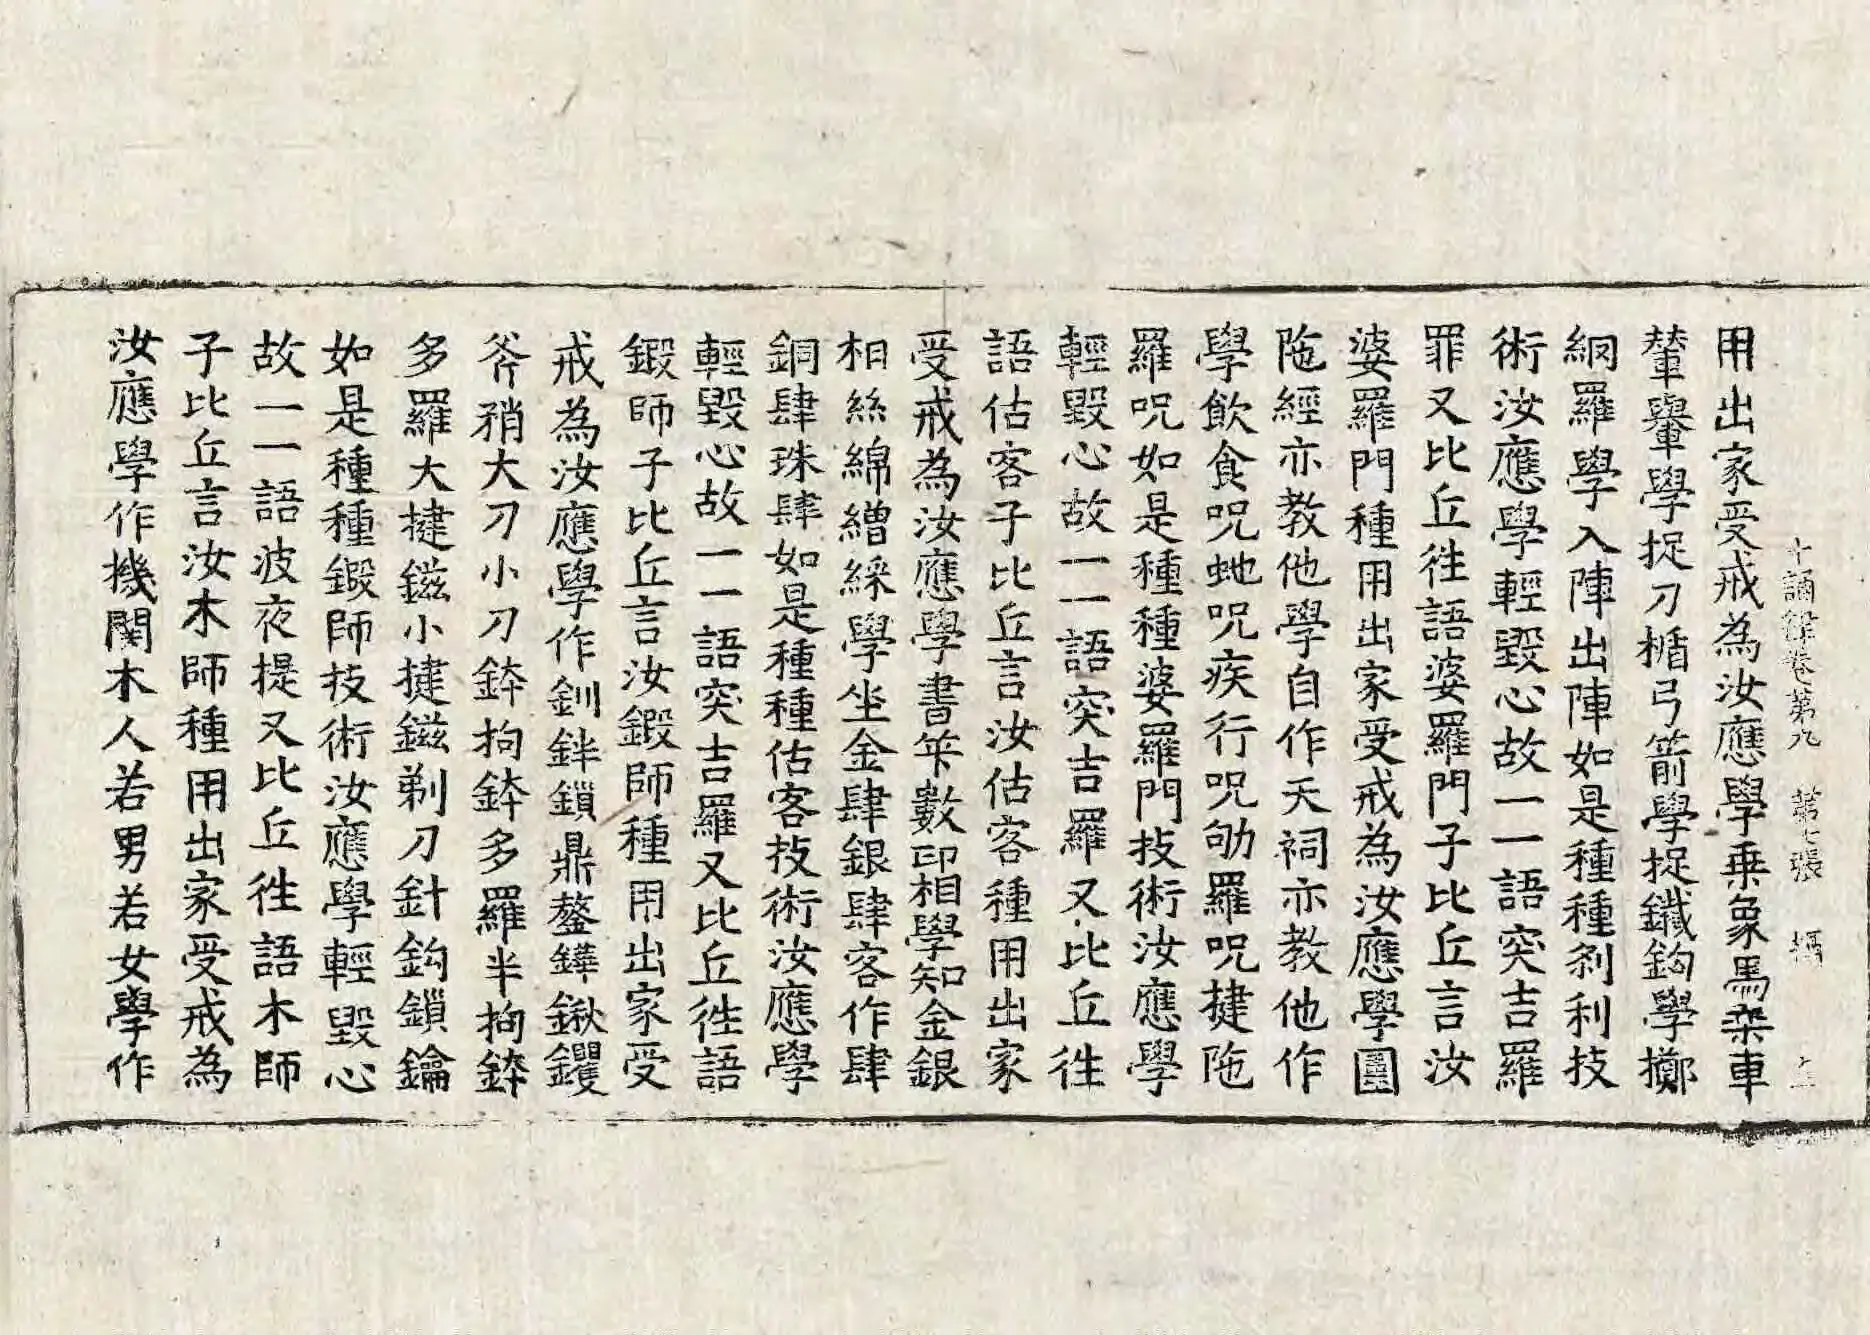 十誦律卷第九 第七張 攝
用出家受戒為汝應學乗象馬乗車
輦轝學捉刀楯弓箭學捉鐵鉤學擲
䋄羅學入陣出陣如是種種剎利技
術汝應學輕毀心故一一語突吉羅
罪又比丘徃語婆羅門子比丘言汝
婆羅門種用出家受戒為汝應學圍
陁經亦教他學自作天祠亦教他作
學飲食呪虵呪疾行呪劬羅呪揵陁
羅呪如是種種婆羅門技術汝應學
輕毀心故一一語突吉羅又比丘徃
語估客子比丘言汝估客種用出家
受戒為汝應學書筭數印相學知金銀
相絲綿繒綵學坐金肆銀肆客作肆
銅肆珠肆如是種種估客技術汝應學
輕毀心故一一語突吉羅又比丘徃語
鍛師子比丘言汝鍛師種用出家受
戒為汝應學作釧鉡鎖鼎鏊鏵鍬钁
斧矟大刀小刀鉢拘鉢多羅半拘鉢
多羅大揵鎡小揵鎡剃刀針鉤鎖鑰
如是種種鍛師技術汝應學輕毀心
故一一語波夜提又比丘徃語木師
子比丘言汝木師種用出家受戒為
汝應學作機關木人若男若女學作